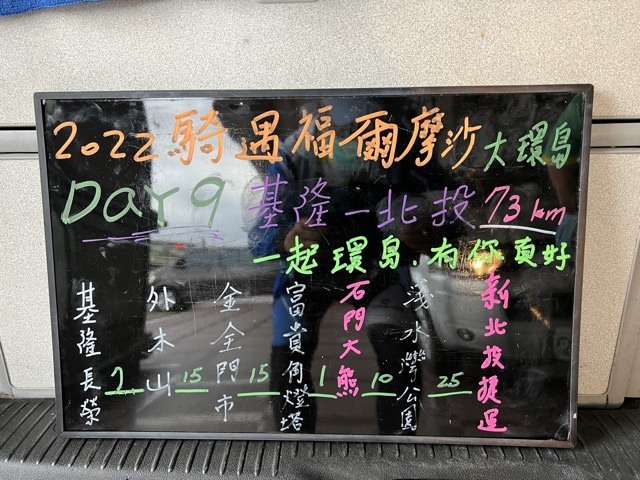 2022騎遇福爾摩沙 大環島
Day 9 基隆-北投 73 km
一起環島.有你真好
基隆長榮
7
外木山
15
金全門市
15
富貴角燈塔
1
石門大熊
10
淺水灣公園
25
新北投捷運